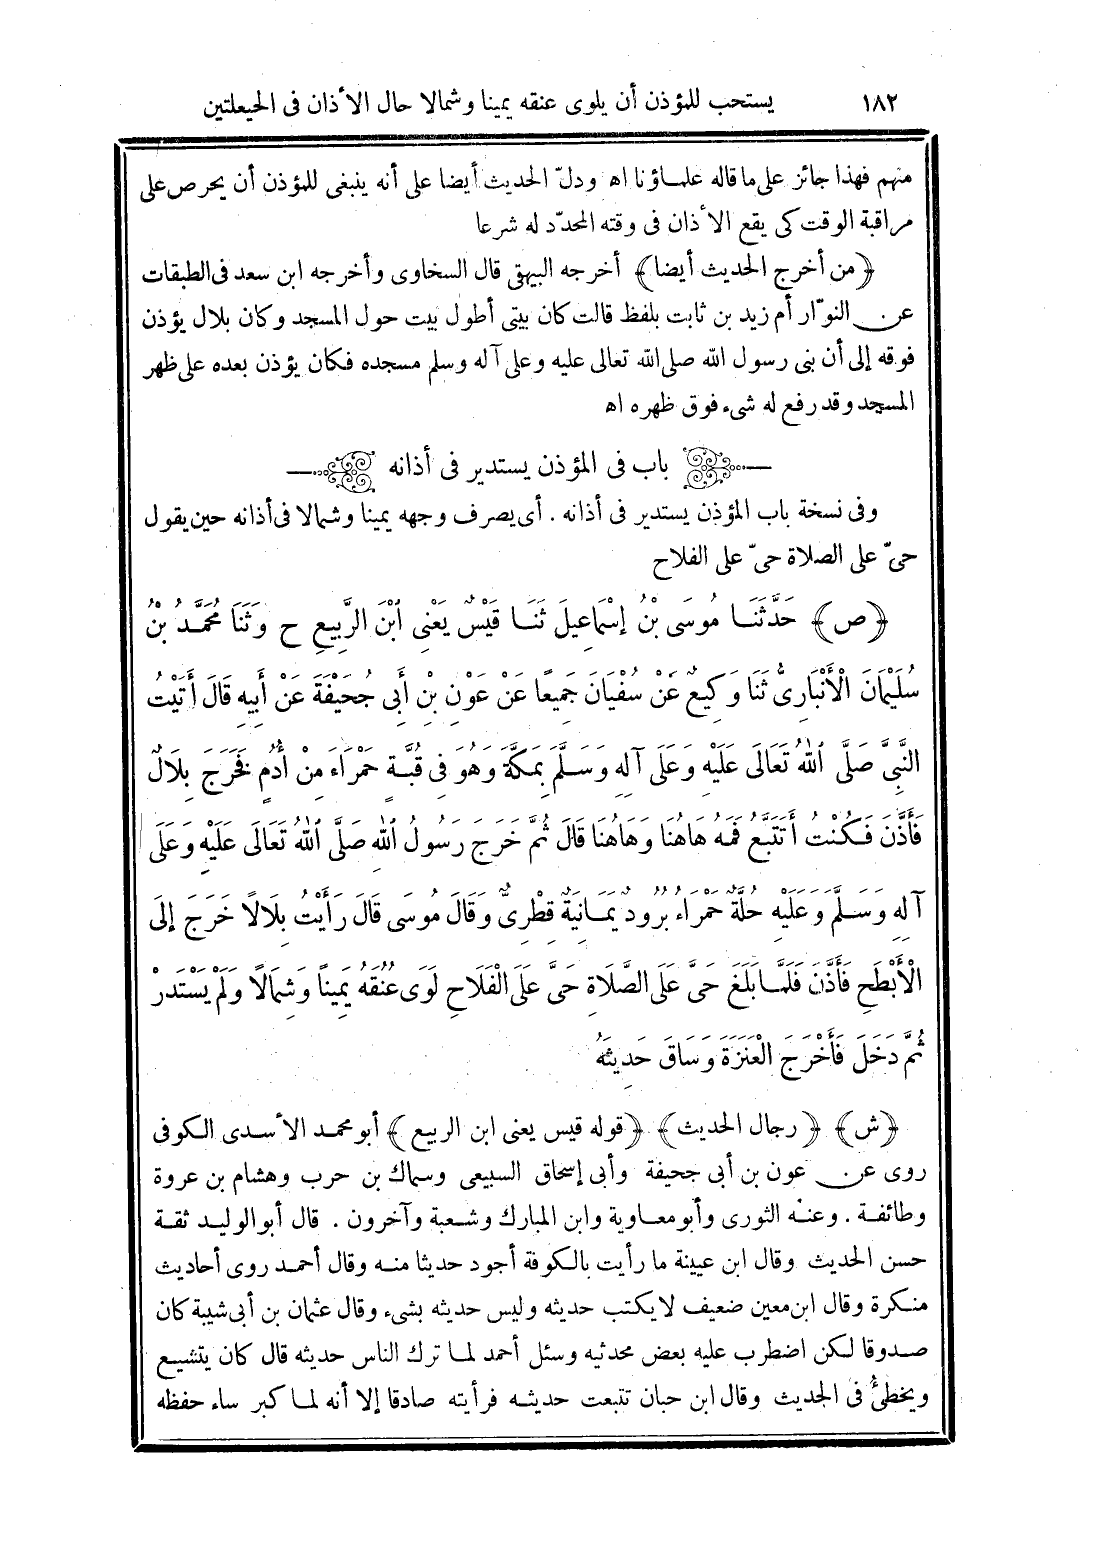 ١٨٢ يستحب للمؤذن أن يلوى عنقه يمينا وشمالا حال الأذان فى الحيعلتين
منهم فهذا جائز على ما قاله علماؤنا اه ودلّ الحديث أيضا على أنه ينبغى للمؤذن أن يحرص على
مراقبة الوقت كى يقع الأذان فى وقته المحدّد له شرعا
﴿من أخرج الحديث أيضا﴾ أخرجه البيهقى قال السخاوى وأخرجه ابن سعد فى الطبقات
عن النوّار أم زيد بن ثابت بلفظ قالت كان بيتى أطول بيت حول المسجد وكان بلال يؤذن
فوقه إلى أن بنى رسول الله صلى الله تعالى عليه وعلى آله وسلم مسجده فكان يؤذن بعده على ظهر
المسجد وقد رفع له شىء فوق ظهره اه
باب فى المؤذن يستدير فى أذانه
وفى نسخة باب المؤذن يستدير فى أذانه . أى يصرف وجهه يمينا وشمالا فى أذانه حين يقول
حىّ على الصلاة حىّ على الفلاح
﴿ص﴾ حَدَّثَنَا مُوسَى بْنُ إِسْمَاعِيلَ ثَنَا قَيْسٌ يَعْنِى ابْنَ الرَّبِيعِ ح وَثَنَا مُحَمَّدُ بْنُ
سُلَيْمَانَ الْأَنْبَارِىُّ ثَنَا وَكِيعٌ عَنْ سُفْيَانَ جَمِيعًا عَنْ عَوْنِ بْنِ أَبِى جُحَيْفَةَ عَنْ أَبِيهِ قَالَ أَتَيْتُ
النَّبِىَّ صَلَّى اللهُ تَعَالَى عَلَيْهِ وَعَلَى آلِهِ وَسَلَّمَ بِمَكَّةَ وَهُوَ فِى قُبَّةٍ حَمْرَاءَ مِنْ أَدَمٍ فَخَرَجَ بِلَالٌ
فَأَذَّنَ فَكُنْتُ أَتَتَبَّعُ فَمَهُ هَاهُنَا وَهَاهُنَا قَالَ ثُمَّ خَرَجَ رَسُولُ اللهِ صَلَّى اللهُ تَعَالَى عَلَيْهِ وَعَلَى
آلِهِ وَسَلَّمَ وَعَلَيْهِ حُلَّةٌ حَمْرَاءُ بُرُودٌ يَمَانِيَةٌ قِطْرِىٌّ وَقَالَ مُوسَى قَالَ رَأَيْتُ بِلَالًا خَرَجَ إِلَى
الْأَبْطَحِ فَأَذَّنَ فَلَمَّا بَلَغَ حَىَّ عَلَى الصَّلَاةِ حَىَّ عَلَى الْفَلَاحِ لَوَى عُنُقَهُ يَمِينًا وَشِمَالًا وَلَمْ يَسْتَدِرْ
ثُمَّ دَخَلَ فَأَخْرَجَ الْعَنَزَةَ وَسَاقَ حَدِيثَهُ
﴿ش﴾ ﴿رجال الحديث﴾ ﴿قوله قيس يعنى ابن الربيع﴾ أبو محمد الأسدى الكوفى
روى عن عون بن أبى جحيفة وأبى إسحاق السبيعى وسماك بن حرب وهشام بن عروة
وطائفة . وعنه الثورى وأبو معاوية وابن المبارك وشعبة وآخرون . قال أبو الوليد ثقة
حسن الحديث وقال ابن عيينة ما رأيت بالكوفة أجود حديثا منه وقال أحمد روى أحاديث
منكرة وقال ابن معين ضعيف لا يكتب حديثه وليس حديثه بشىء وقال عثمان بن أبى شيبة كان
صدوقا لكن اضطرب عليه بعض محدثيه وسئل أحمد لما ترك الناس حديثه قال كان يتشيع
ويخطئُ فى الحديث وقال ابن حبان تتبعت حديثه فرأيته صادقا إلا أنه لما كبر ساء حفظه